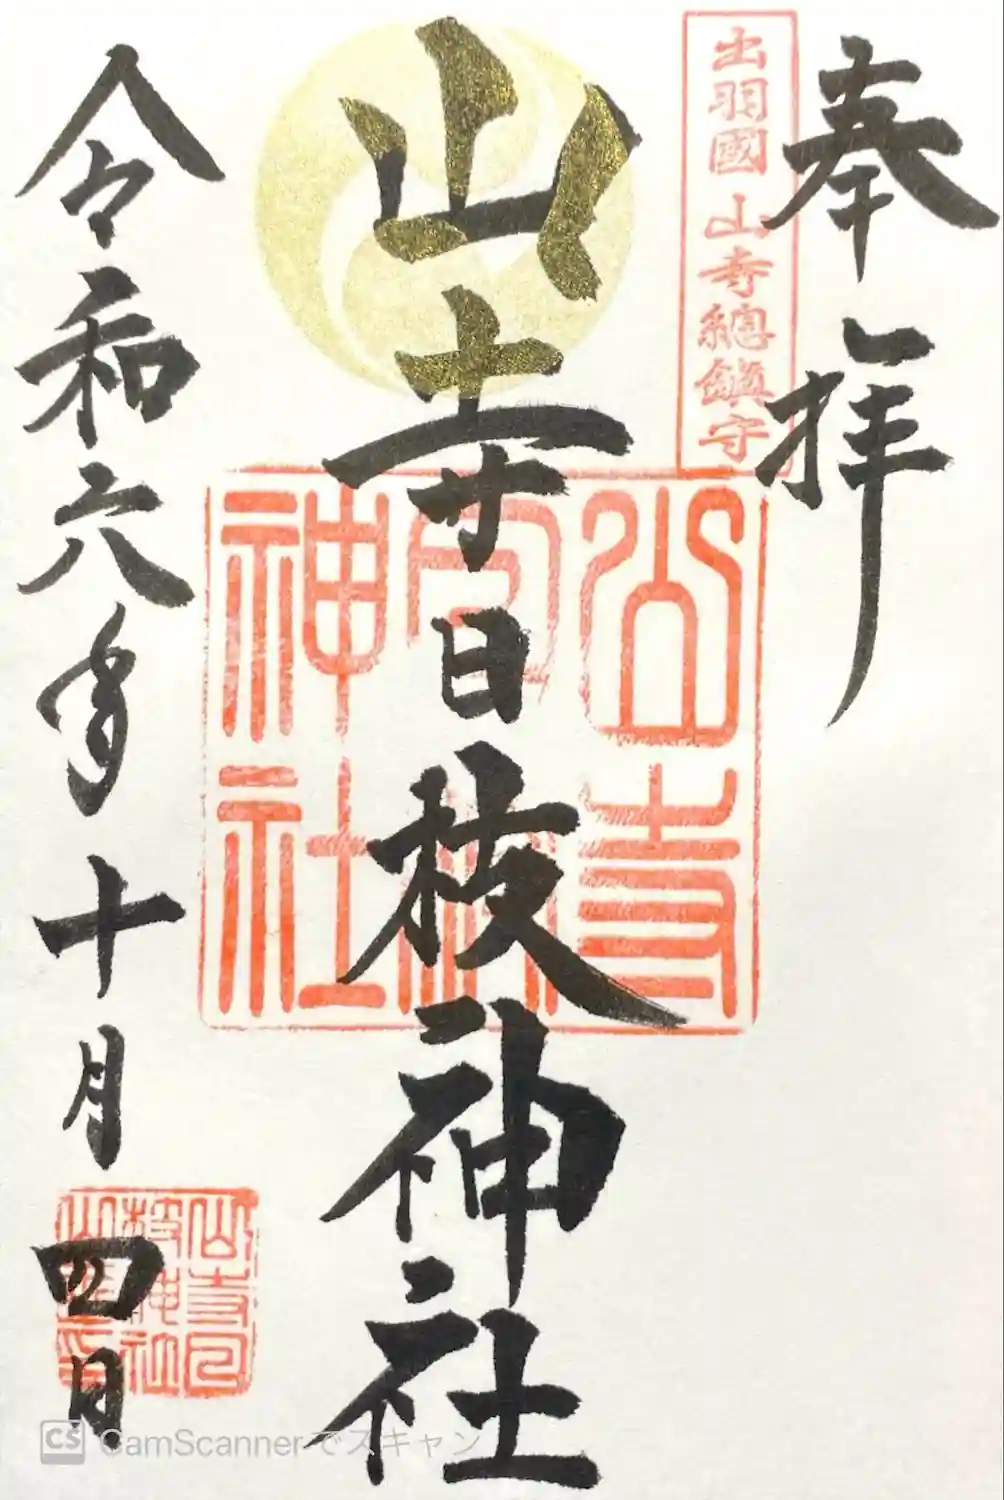 奉拝
出羽國 山寺總鎮守
山寺日枝神社
山寺日枝神社
令和六年十月四日
CS CamScannerでスキャン